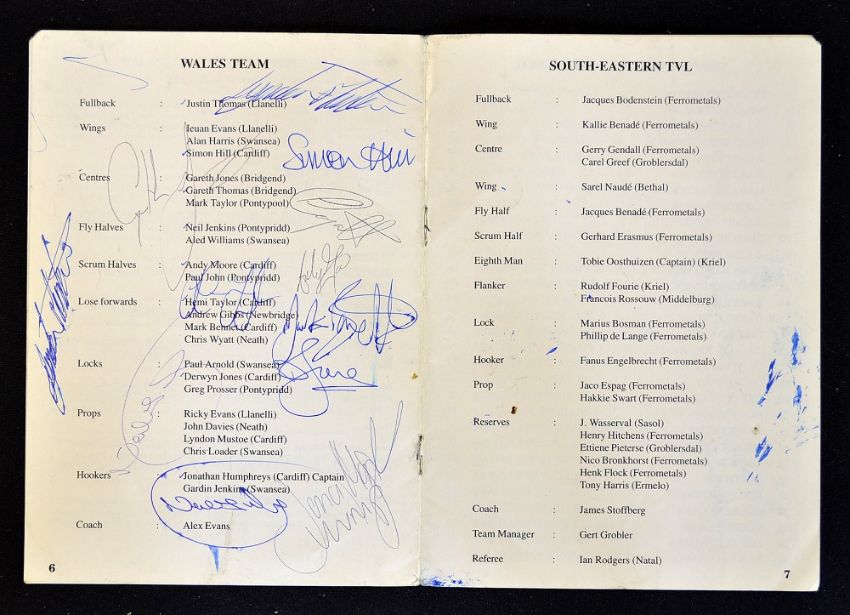 WALES TEAM
Fullback : Justin Thomas (Llanelli)
Wings : Ieuan Evans (Llanelli)
Alan Harris (Swansea)
Simon Hill (Cardiff)
Centres : Gareth Jones (Bridgend)
Gareth Thomas (Bridgend)
Mark Taylor (Pontypool)
Fly Halves : Neil Jenkins (Pontypridd)
Aled Williams (Swansea)
Scrum Halves : Andy Moore (Cardiff)
Paul John (Pontypridd)
Lose forwards : Hemi Taylor (Cardiff)
Andrew Gibbs (Newbridge)
Mark Bennet (Cardiff)
Chris Wyatt (Neath)
Locks : Paul Arnold (Swansea)
Derwyn Jones (Cardiff)
Greg Prosser (Pontypridd)
Props : Ricky Evans (Llanelli)
John Davies (Neath)
Lyndon Mustoe (Cardiff)
Chris Loader (Swansea)
Hookers : Jonathan Humphreys (Cardiff) Captain
Gardin Jenkins (Swansea)
Coach : Alex Evans
Simon Hill
6
SOUTH-EASTERN TVL
Fullback : Jacques Bodenstein (Ferrometals)
Wing : Kallie Benadé (Ferrometals)
Centre : Gerry Gendall (Ferrometals)
Carel Greef (Groblersdal)
Wing : Sarel Naudé (Bethal)
Fly Half : Jacques Benadé (Ferrometals)
Scrum Half : Gerhard Erasmus (Ferrometals)
Eighth Man : Tobie Oosthuizen (Captain) (Kriel)
Flanker : Rudolf Fourie (Kriel)
Francois Rossouw (Middelburg)
Lock : Marius Bosman (Ferrometals)
Phillip de Lange (Ferrometals)
Hooker : Fanus Engelbrecht (Ferrometals)
Prop : Jaco Espag (Ferrometals)
Hakkie Swart (Ferrometals)
Reserves : J. Wasserval (Sasol)
Henry Hitchens (Ferrometals)
Ettiene Pieterse (Groblersdal)
Nico Bronkhorst (Ferrometals)
Henk Flock (Ferrometals)
Tony Harris (Ermelo)
Coach : James Stoffberg
Team Manager : Gert Grobler
Referee : Ian Rodgers (Natal)
7